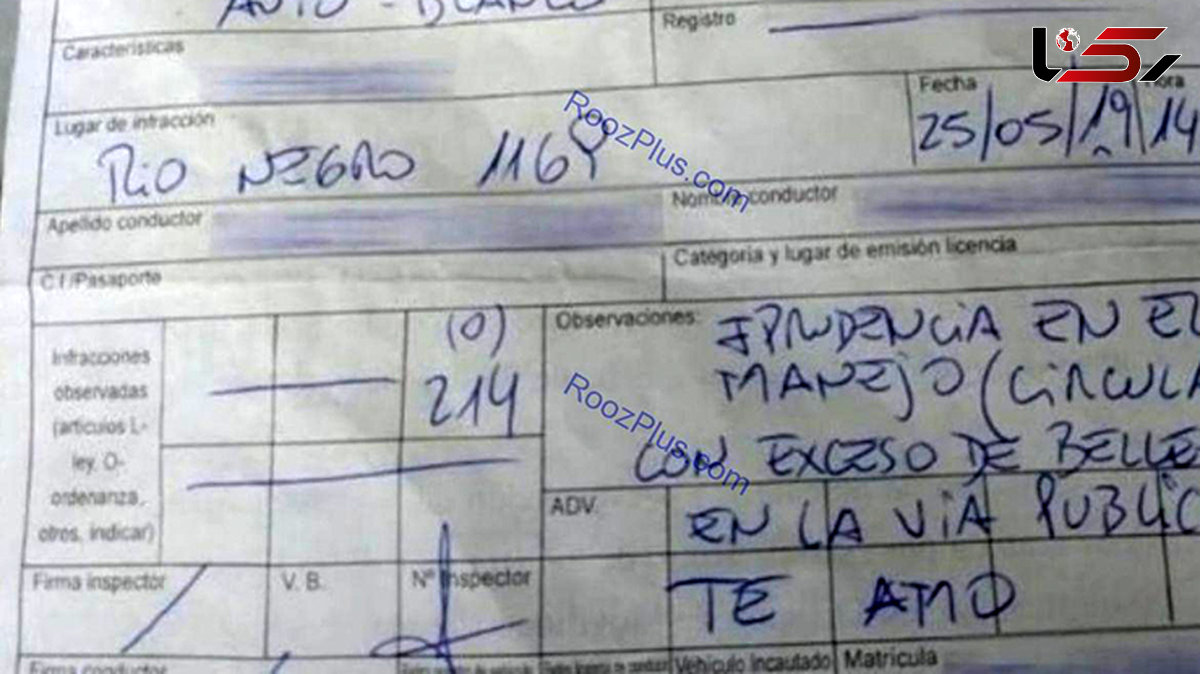 AUTO - BLANCO
Registro
Características
Fecha
Hora
Lugar de infracción
25/05/19 14
RIO NEGRO 1164
RoozPlus.com
Apellido conductor
Nombre conductor
C.I/Pasaporte
Categoría y lugar de emisión licencia
Infracciones
observadas
(artículos L-
ley, O-
ordenanza,
otros, indicar)
(O)
214
Observaciones:
IPRUDENCIA EN EL
MANEJO (CIRCULA
CON EXCESO DE BELLE
RoozPlus.com
ADV.
EN LA VIA PUBLIC
Firma inspector
V. B.
Nº Inspector
TE AMO
Firma conductor
Vehículo incautado
Matrícula